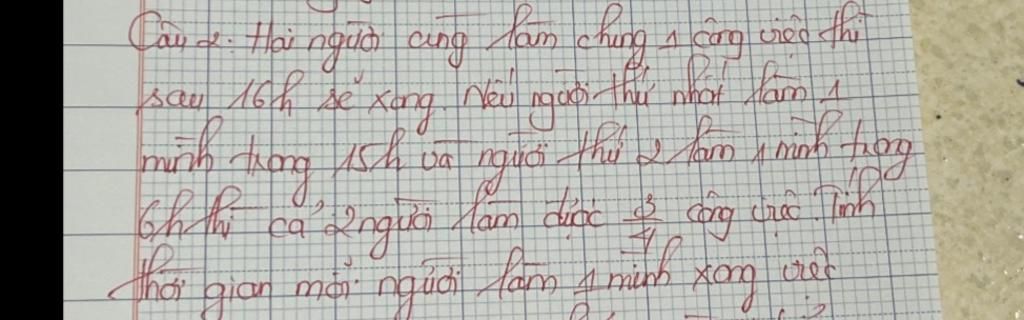 Câu 2: Hai người cùng làm chung 1 công việc thì
sau 16h sẽ xong. Nếu người thứ nhất làm 1
mình trong 15h và người thứ 2 làm 1 mình trong
6h thì cả 2 người làm được 3/4 công việc. Tính
thời gian mỗi người làm 1 mình xong việc